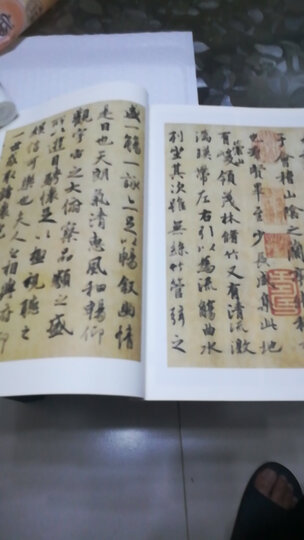 會稽山陰之蘭
也羣賢畢至少長咸集此地
有崇山峻領茂林脩竹又有清流激
湍暎帶左右引以為流觴曲水
列坐其次雖無絲竹管弦之
盛一觴一詠亦足以暢敘幽情
是日也天朗氣清惠風和暢仰
觀宇宙之大俯察品類之盛
所以遊目騁懷足以極視聽之
娛信可樂也夫人之相與俯仰
一世或取諸